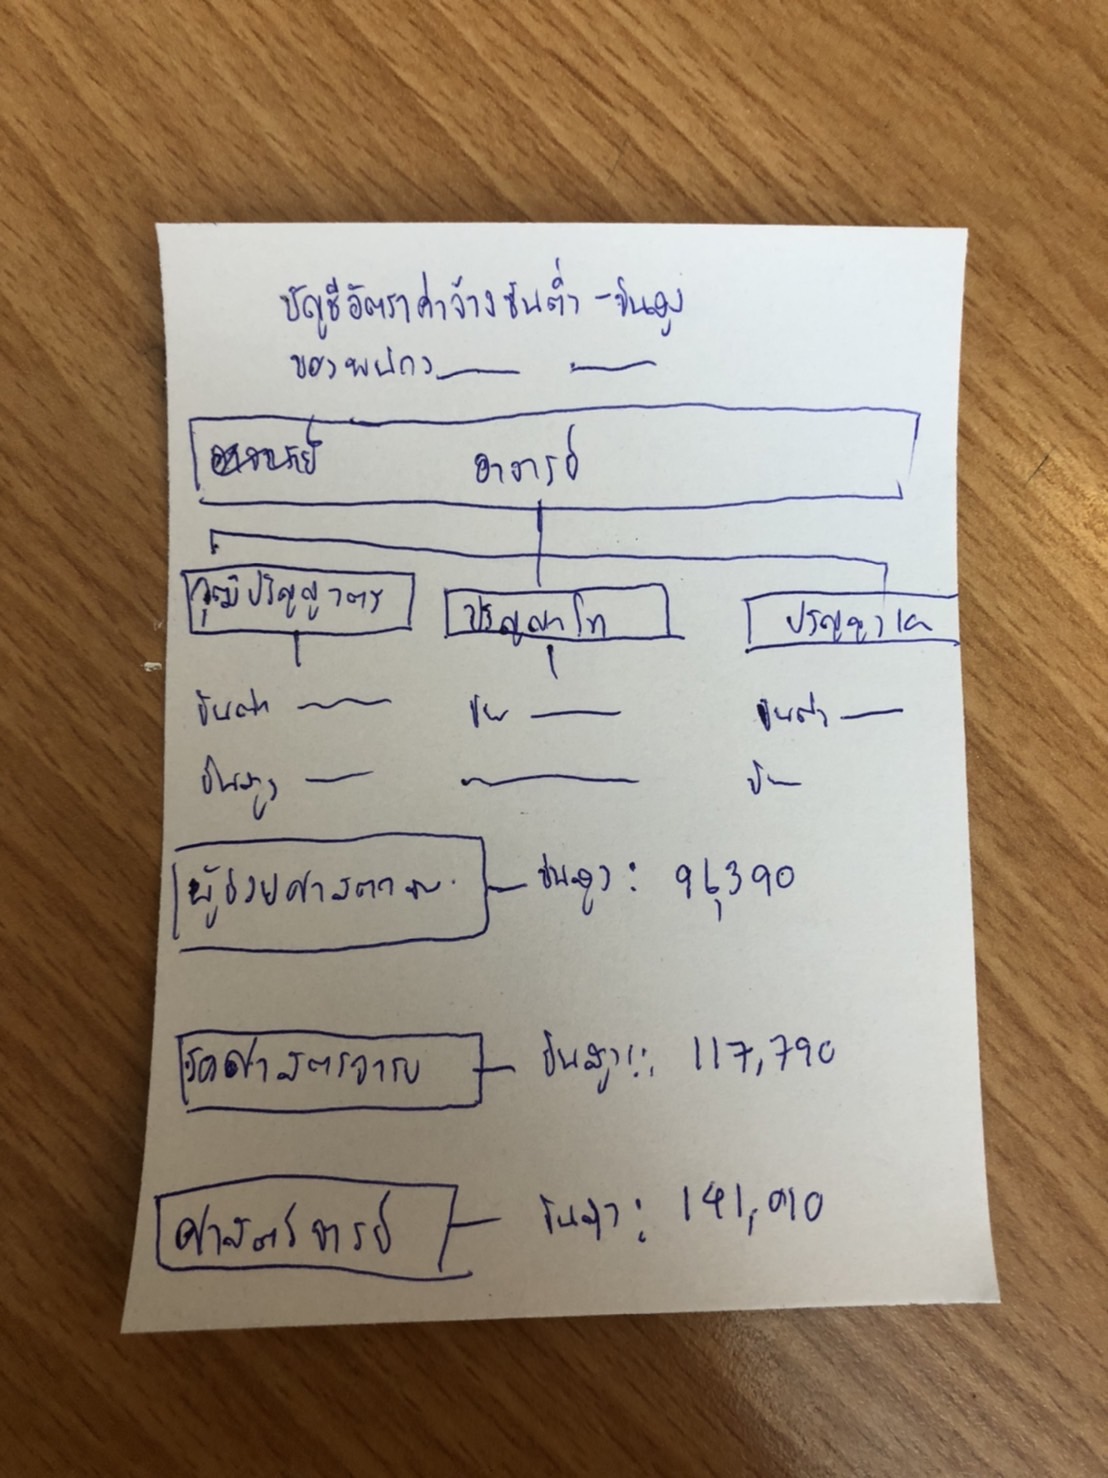 บัญชีอัตราค่าจ้างขั้นต่ำ - ขั้นสูง
ของพนักง
อาจารย์
วุฒิปริญญาตรี ปริญญาโท ปริญญาเอก
ขั้นต่ำ ขั้น ขั้นต่ำ
ขั้นสูง ขั้น
ผู้ช่วยศาสตรา ขั้นสูง : 96,390
รองศาสตราจารย์ ขั้นสูง : 117,790
ศาสตราจารย์ ขั้นสูง : 141,010